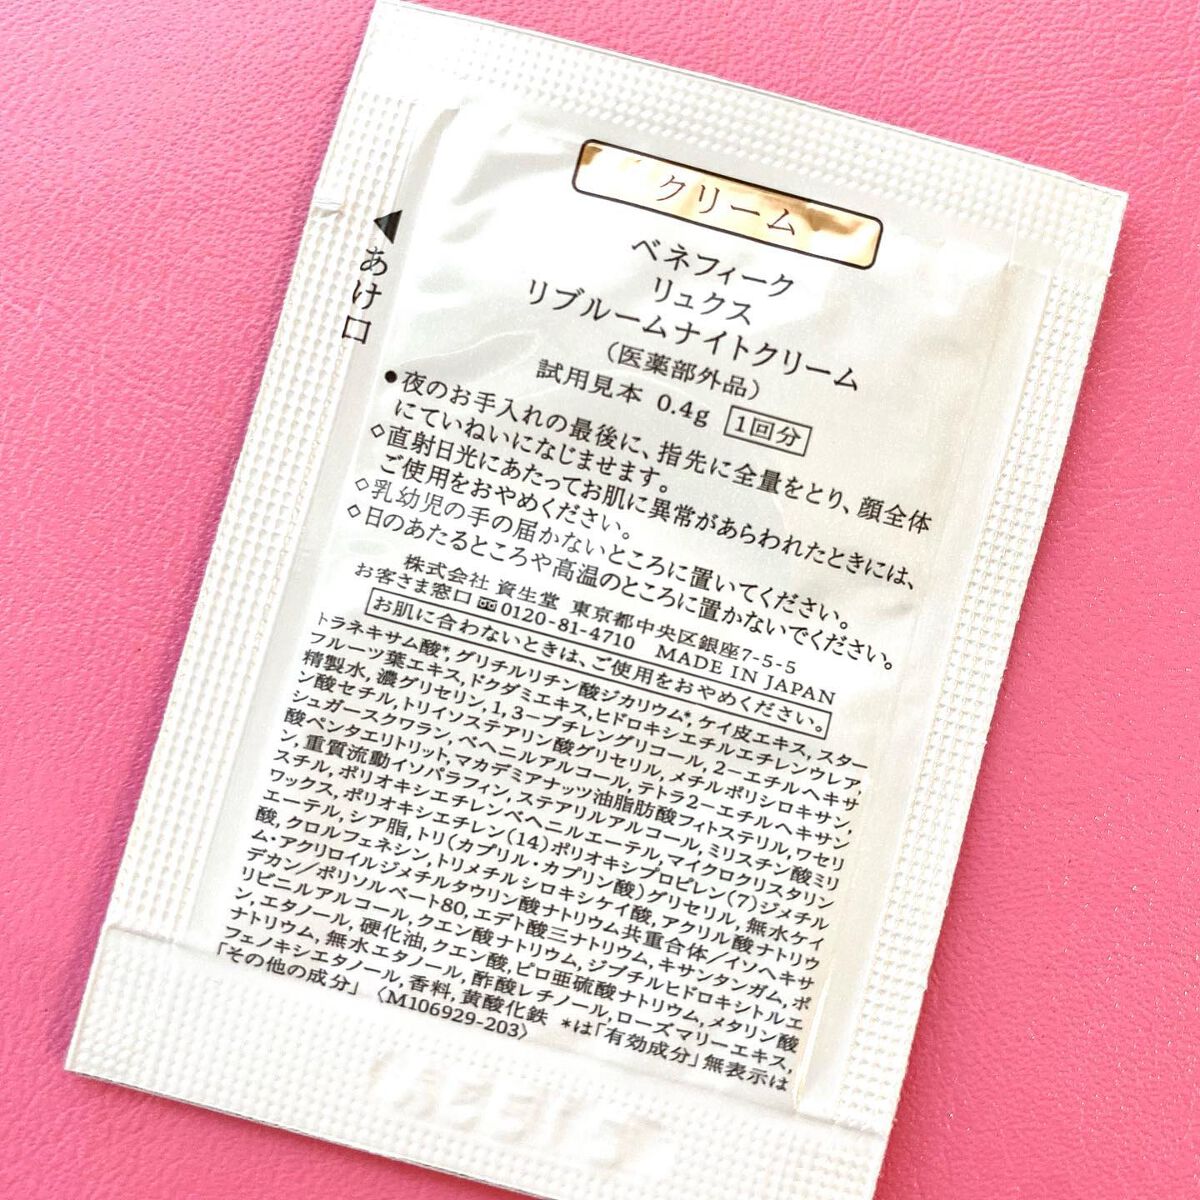 クリーム
ベネフィーク
リュクス
リブルームナイトクリーム
（医薬部外品）
試用見本 0.4g 1回分
あけ口
●夜のお手入れの最後に、指先に全量をとり、顔全体
にていねいになじませます。
◇直射日光にあたってお肌に異常があらわれたときには、
ご使用をおやめください。
◇乳幼児の手の届かないところに置いてください。
◇日のあたるところや高温のところに置かないでください。
株式会社 資生堂 東京都中央区銀座7-5-5
お客さま窓口 0120-81-4710 MADE IN JAPAN
お肌に合わないときは、ご使用をおやめください。
トラネキサム酸*, グリチルリチン酸ジカリウム*, ケイ皮エキス, スター
フルーツ葉エキス, ドクダミエキス, ヒドロキシエチルエチレンウレア,
精製水, 濃グリセリン, 1,3−ブチレングリコール, 2−エチルヘキサ
ン酸セチル, トリイソステアリン酸グリセリル, メチルポリシロキサン,
シュガースクワラン, ベヘニルアルコール, テトラ2−エチルヘキサン
酸ペンタエリトリット, マカデミアナッツ油脂肪酸フィトステリル, ワセリ
ン, 重質流動イソパラフィン, ステアリルアルコール, ミリスチン酸ミリ
スチル, ポリオキシエチレンベヘニルエーテル, マイクロクリスタリン
ワックス, ポリオキシエチレン(14)ポリオキシプロピレン(7)ジメチル
エーテル, シア脂, トリ(カプリル・カプリン酸)グリセリル, 無水ケイ
酸, クロルフェネシン, トリメチルシロキシケイ酸, アクリル酸ナトリウ
ム・アクリロイルジメチルタウリン酸ナトリウム共重合体／イソヘキサ
デカン／ポリソルベート80, エデト酸三ナトリウム, キサンタンガム, ポ
リビニルアルコール, クエン酸ナトリウム, ジブチルヒドロキシトルエ
ン, エタノール, 硬化油, クエン酸, ピロ亜硫酸ナトリウム, メタリン酸
ナトリウム, 無水エタノール, 酢酸レチノール, ローズマリーエキス,
フェノキシエタノール, 香料, 黄酸化鉄 *は「有効成分」無表示は
「その他の成分」 〈M106929-203〉